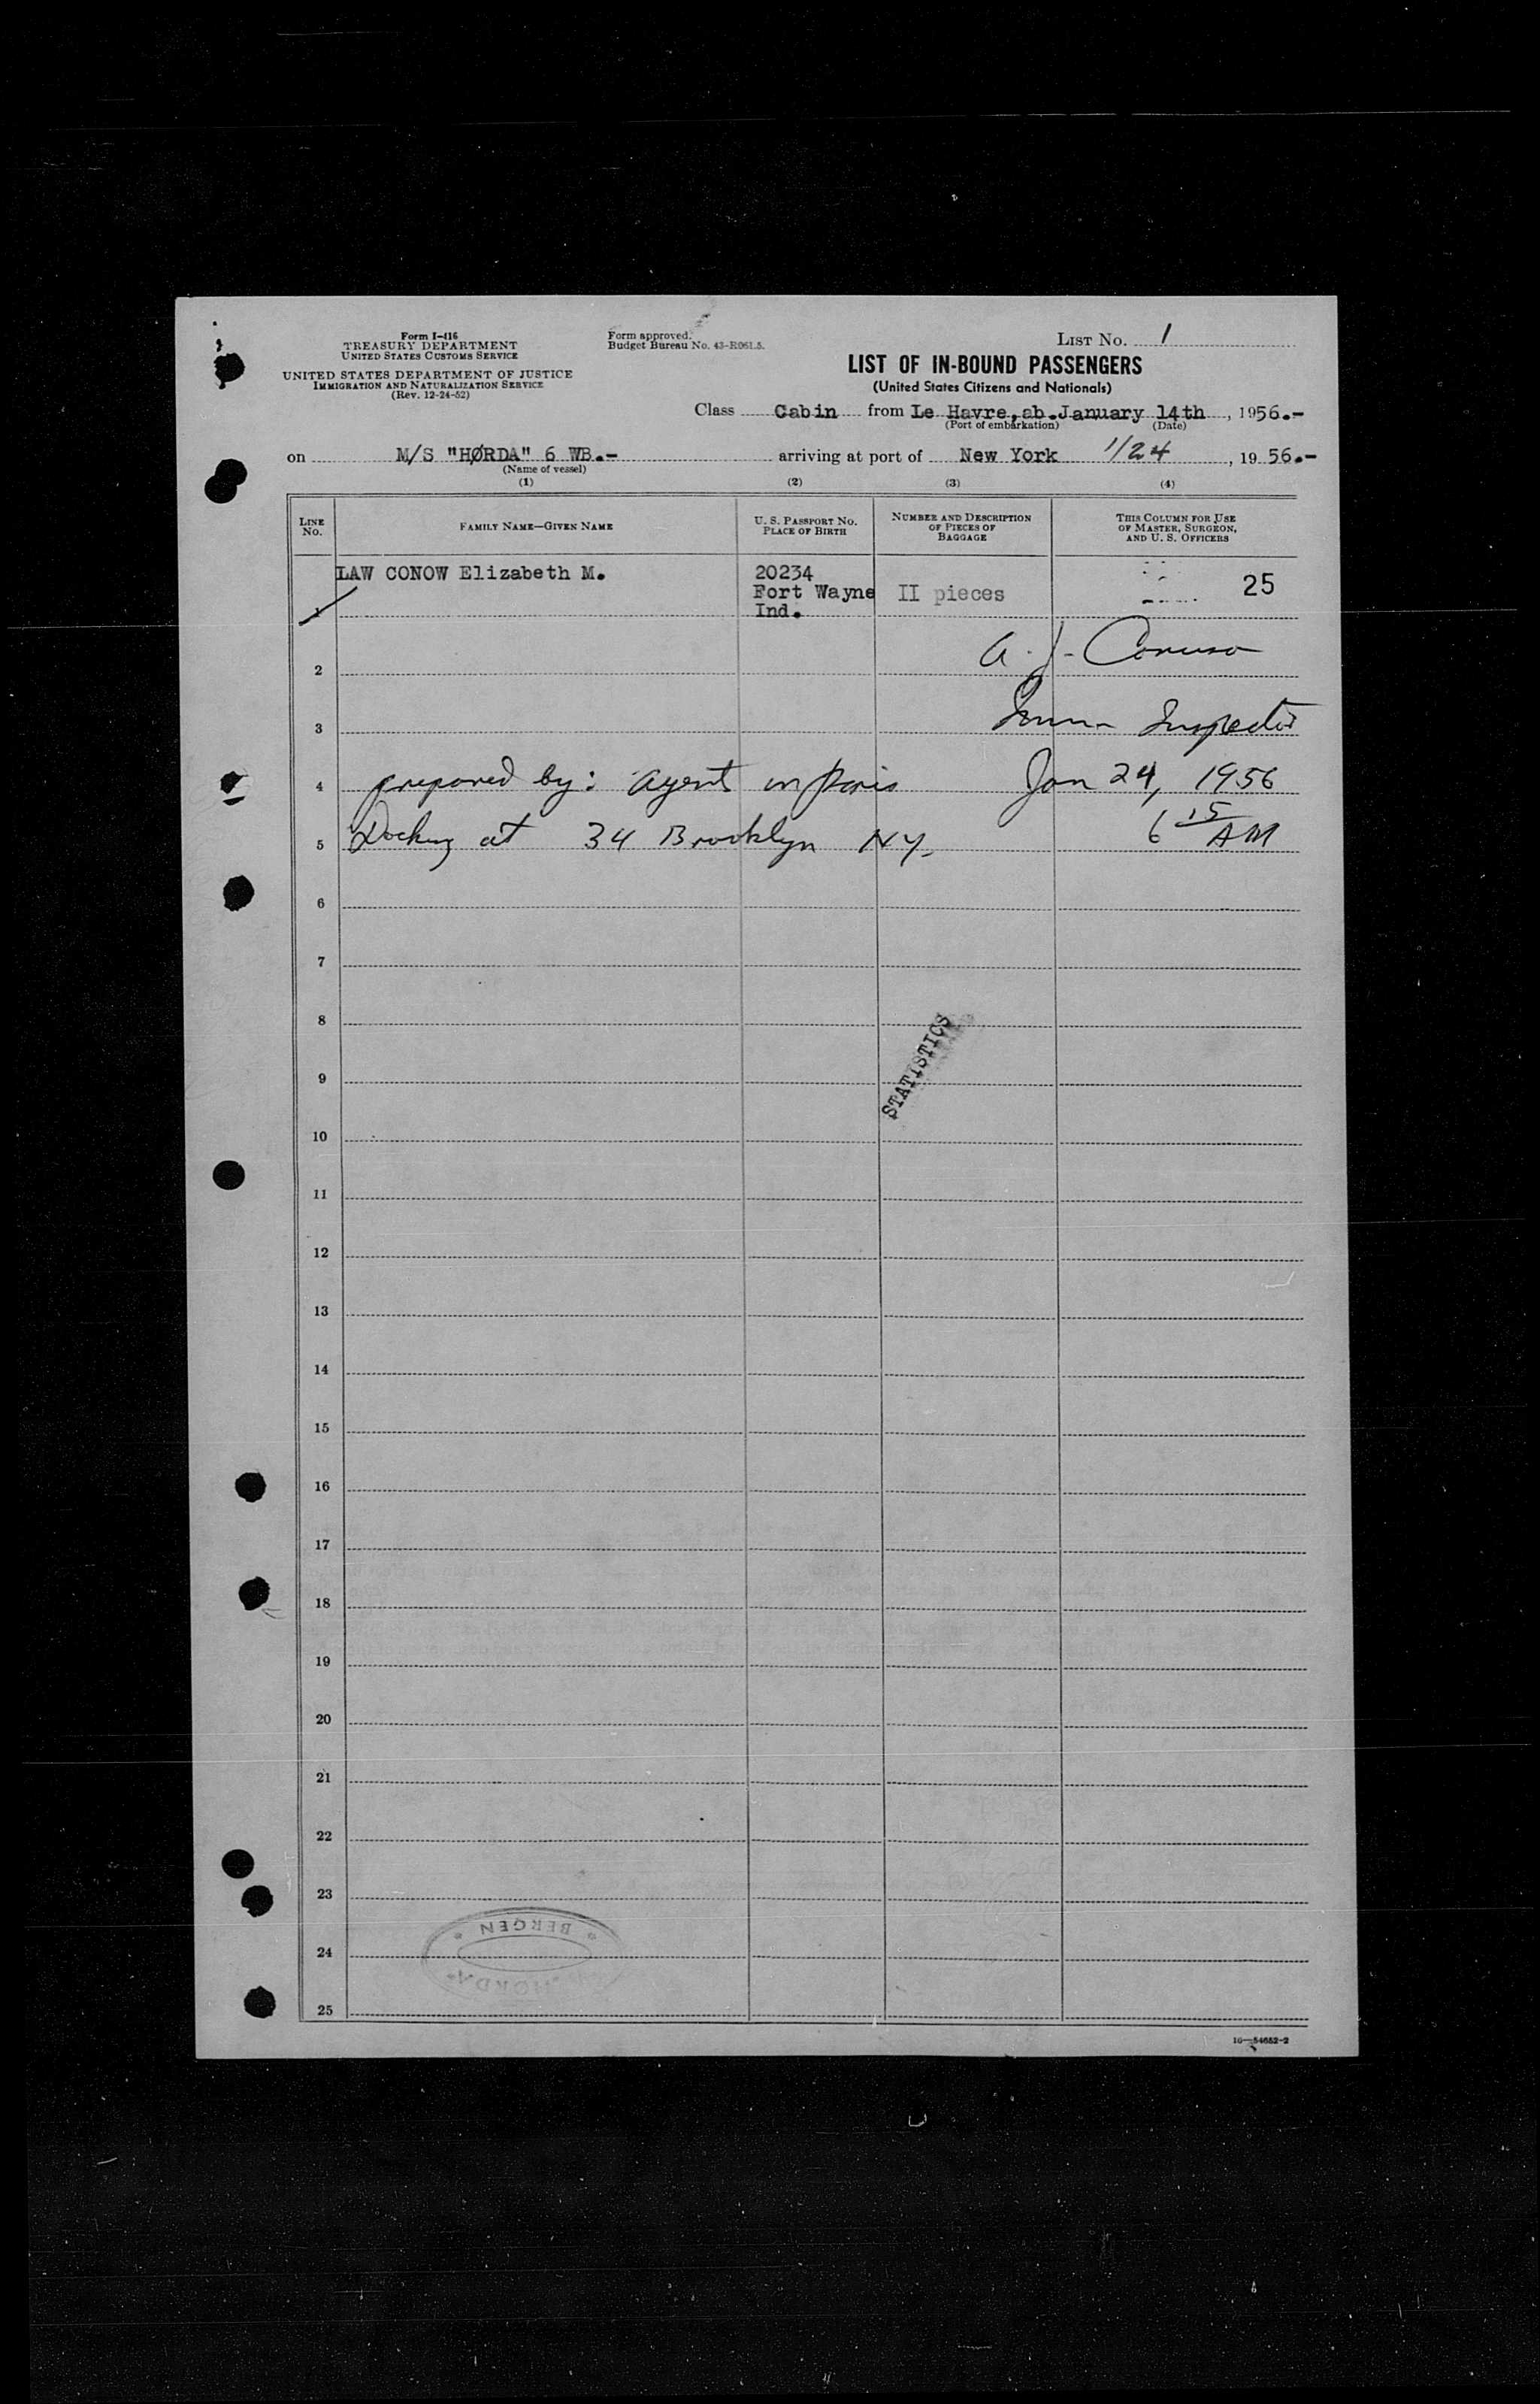 Form I-416
TREASURY DEPARTMENT
UNITED STATES CUSTOMS SERVICE
UNITED STATES DEPARTMENT OF JUSTICE
IMMIGRATION AND NATURALIZATION SERVICE
(Rev. 12-24-52)
Form approved.
Budget Bureau No. 43-R061.5.
LIST NO. 1
LIST OF IN-BOUND PASSENGERS
(United States Citizens and Nationals)
Class Cabin from Le Havre, ab. January 14th, 1956.-
(Port of embarkation) (Date)
on M/S "HØRDA" 6 WB.- arriving at port of New York 1/24, 1956.-
(Name of vessel)
(1) (2) (3) (4)
LINE NO. FAMILY NAME—GIVEN NAME U. S. PASSPORT NO. PLACE OF BIRTH NUMBER AND DESCRIPTION OF PIECES OF BAGGAGE THIS COLUMN FOR USE OF MASTER, SURGEON, AND U. S. OFFICERS
LAW CONOW Elizabeth M. 20234 25
Fort Wayne II pieces
1 Ind.
2 A. J. Caruso
3 Imm Inspector
4 prepared by: Agent in Paris Jan 24, 1956
5 Docking at 34 Brooklyn N.Y. 6 15 AM
6
7
8
STATISTICS
9
10
11
12
13
14
15
16
17
18
19
20
21
22
23
BERGEN
24
25
16—54652-2